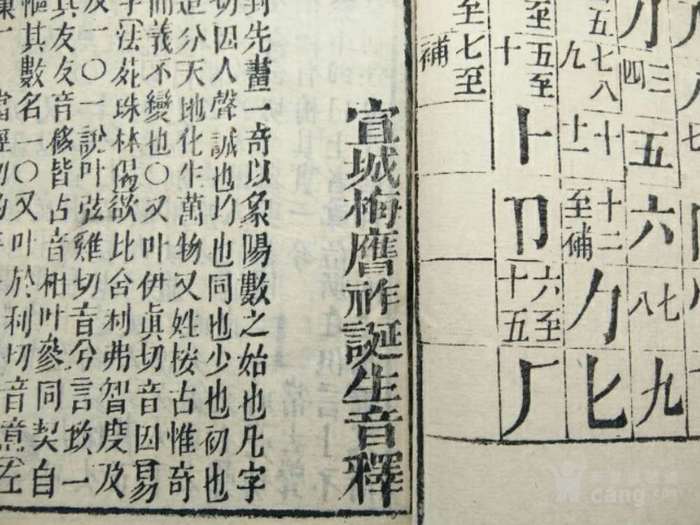 小三四五六七八九
五七八九十十一十二至補力匕
十五至卜卩六至十五厂
至七至補
宣城梅膺祚誕生音釋
對先畫一奇以象陽數之始也凡字
切因入聲誠也均也同也少也初也
造分天地化生萬物又姓按古惟奇
而義不變也〇又叶伊眞切音因易
字法苑珠林偈欲比舍利弗智度及
及一〇一說叶弦雞切音兮言攷一
其友友音移皆占音相叶參同契自
樞其數名一〇又叶於利切音意左